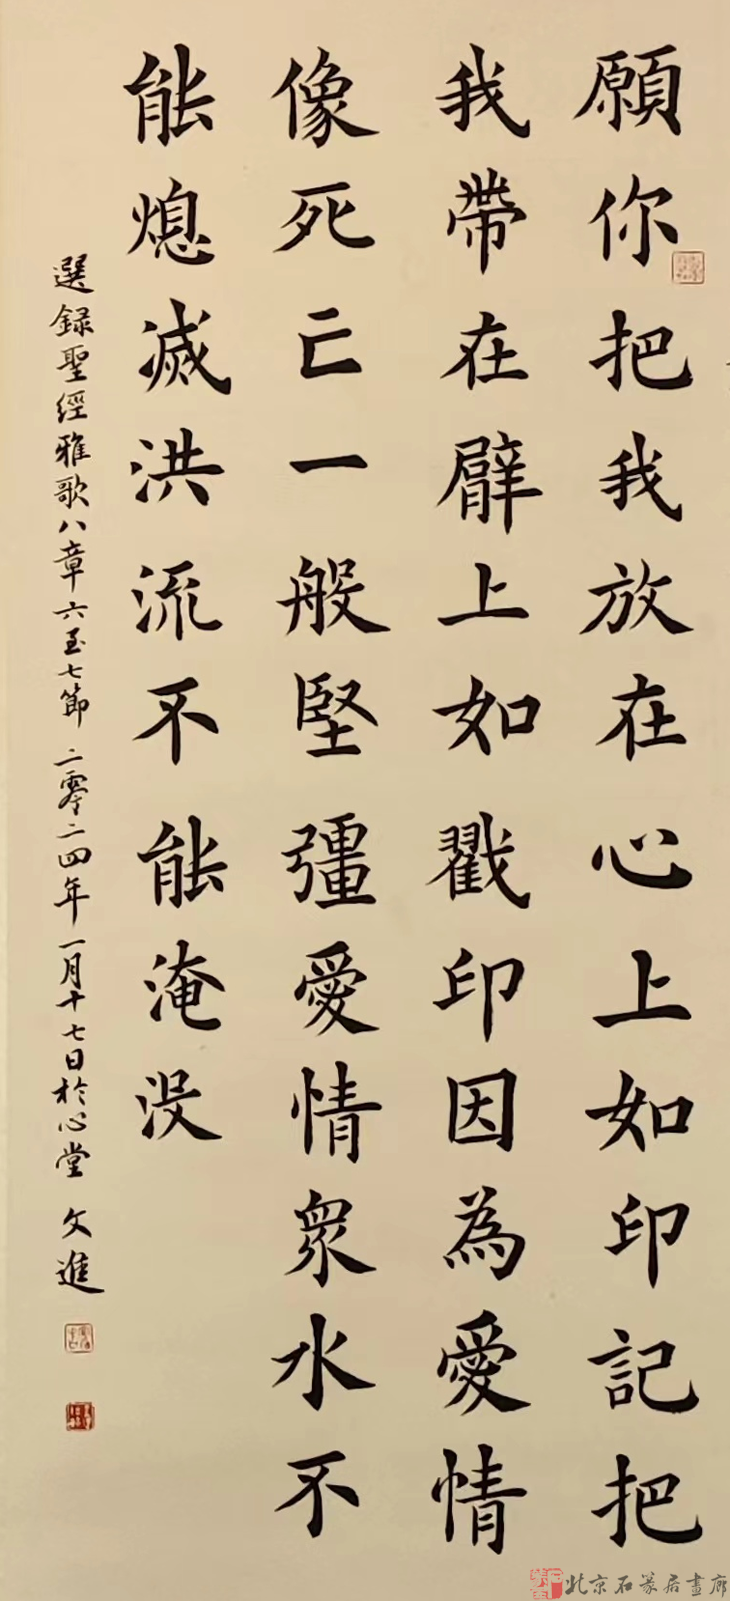 願你把我放在心上如印記把
我帶在臂上如戳印因為愛情
像死亡一般堅彊愛情衆水不
能熄滅洪流不能淹没
選録聖經雅歌八章六至七節 二零二四年一月十七日於心堂 文進
北京石篆居畫廊